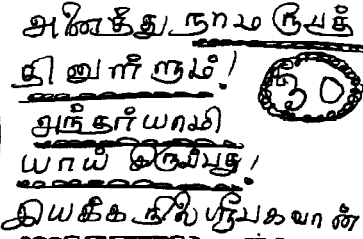 அனைத்து நாம ரூபத்
தினுளளும்!
30
அந்தர்யாமி
யாய் இருப்பது!
இயக்க நில் ஸ்ரீபகவான்